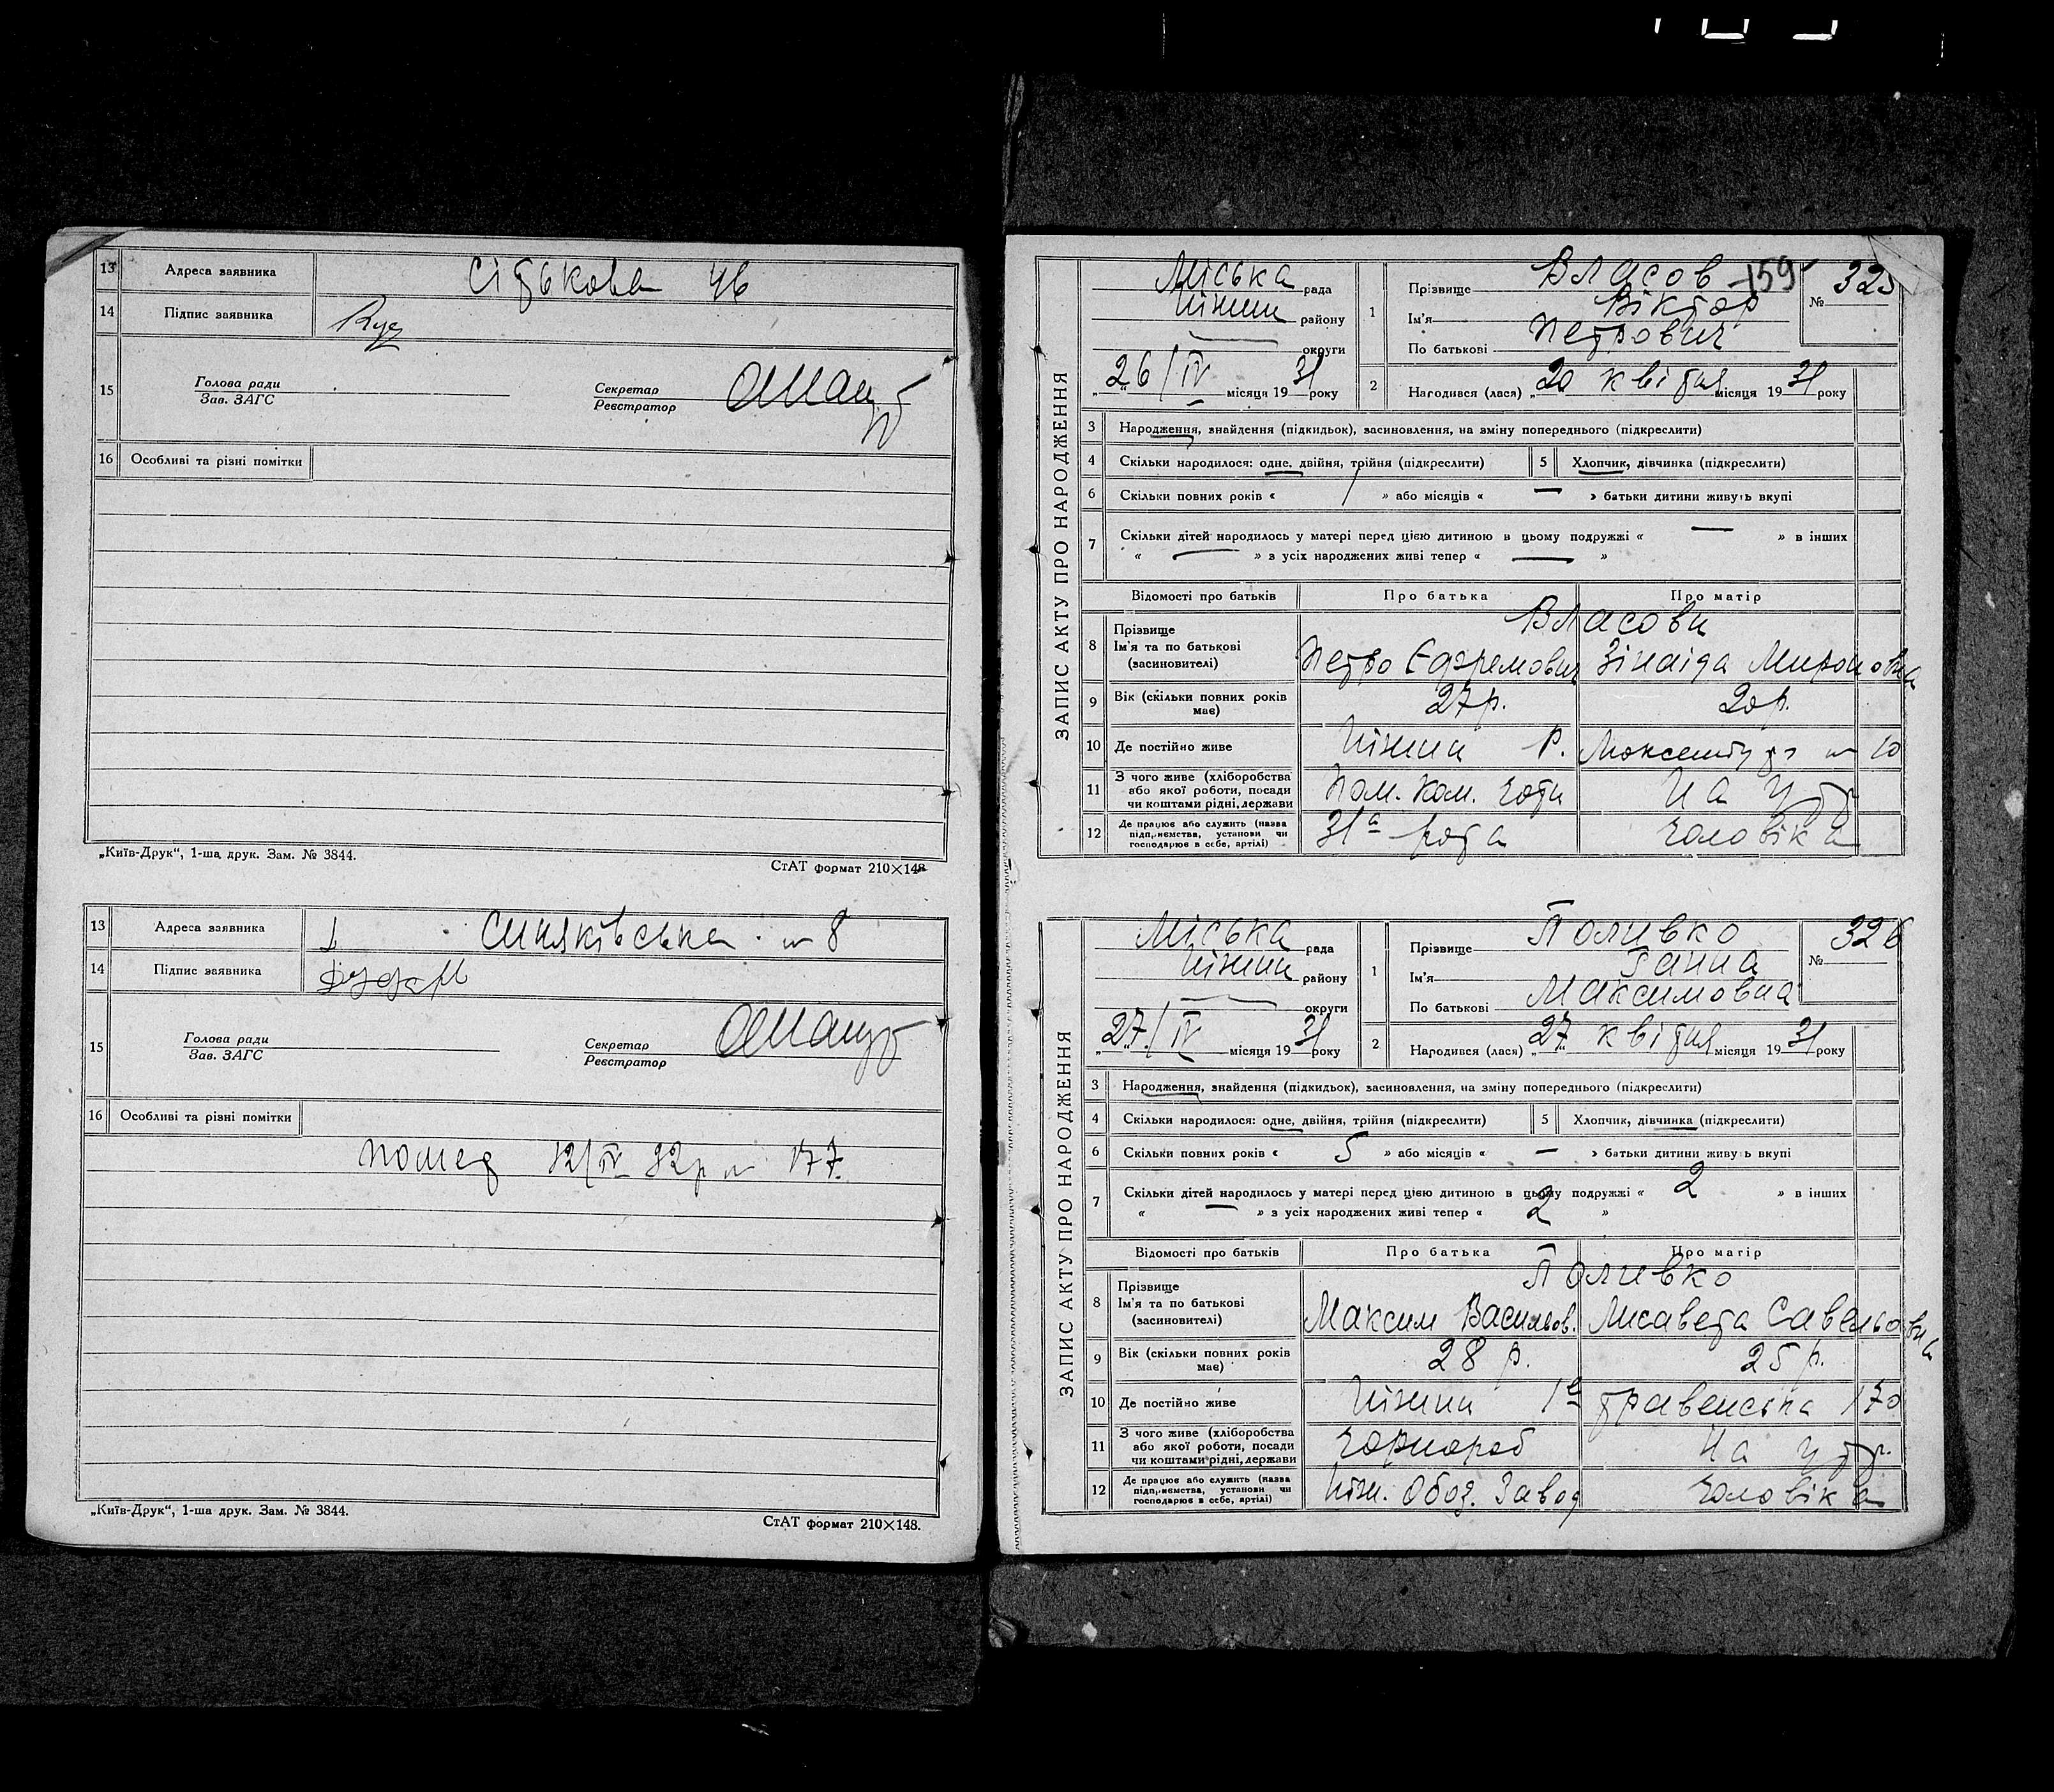 13 Адреса заявника Сітькова 46
14 Підпис заявника Куз
15 Голова ради
Зав. ЗАГС
Секретар
Реєстратор
16 Особливі та різні помітки
„Київ-Друк“, 1-ша друк. Зам. № 3844.
СтАТ формат 210×148
13 Адреса заявника Синяківська № 8
14 Підпис заявника
15 Голова ради
Зав. ЗАГС
Секретар
Реєстратор
16 Особливі та різні помітки
помер 12/IV 32р № 177.
„Київ-Друк“, 1-ша друк. Зам. № 3844.
СтАТ формат 210×148.
ЗАПИС АКТУ ПРО НАРОДЖЕННЯ
Міська рада
Ніжин району
округи
„26/IV місяця 1931 року
1 Прізвище Власов 159
№ 325
Ім'я Віктор
По батькові Петрович
2 Народився (лася) „20 квітня місяця 1931 року
3 Народження, знайдення (підкидьок), засиновлення, на зміну попереднього (підкреслити)
4 Скільки народилося: одне, двійня, трійня (підкреслити) 5 Хлопчик, дівчинка (підкреслити)
6 Скільки повних років « 1 » або місяців « — » батьки дитини живуть вкупі
7 Скільки дітей народилось у матері перед цією дитиною в цьому подружжі « — » в інших
« — » з усіх народжених живі тепер « — »
Відомості про батьків Про батька Про матір
8 Прізвище Власови
Ім'я та по батькові Петро Єфремович Зінаіда Мироновна
(засиновителі)
9 Вік (скільки повних років має) 27р. 20р.
10 Де постійно живе Ніжин р. № 10
11 З чого живе (хліборобства або якої роботи, посади чи коштами рідні, держави Пом. Ком. роти На утр
12 Де працює або служить (назва підприємства, установи чи господарює в себе, артілі) 31а рота чоловіка
ЗАПИС АКТУ ПРО НАРОДЖЕННЯ
Міська рада
Ніжин району
округи
„27/IV місяця 1931 року
1 Прізвище Поливко
№ 326
Ім'я Ганна
По батькові Максимовна
2 Народився (лася) „27 квітня місяця 1931 року
3 Народження, знайдення (підкидьок), засиновлення, на зміну попереднього (підкреслити)
4 Скільки народилося: одне, двійня, трійня (підкреслити) 5 Хлопчик, дівчинка (підкреслити)
6 Скільки повних років « 5 » або місяців « — » батьки дитини живуть вкупі
7 Скільки дітей народилось у матері перед цією дитиною в цьому подружжі « 2 » в інших
« — » з усіх народжених живі тепер « 2 »
Відомості про батьків Про батька Про матір
8 Прізвище Поливко
Ім'я та по батькові Максим Васильов. Лисавета Савельовна
(засиновителі)
9 Вік (скільки повних років має) 28 р. 25 р.
10 Де постійно живе Ніжин 170
11 З чого живе (хліборобства або якої роботи, посади чи коштами рідні, держави Чорнороб На утр.
12 Де працює або служить (назва підприємства, установи чи господарює в себе, артілі) Ніжн. Обоз. Завод чоловіка